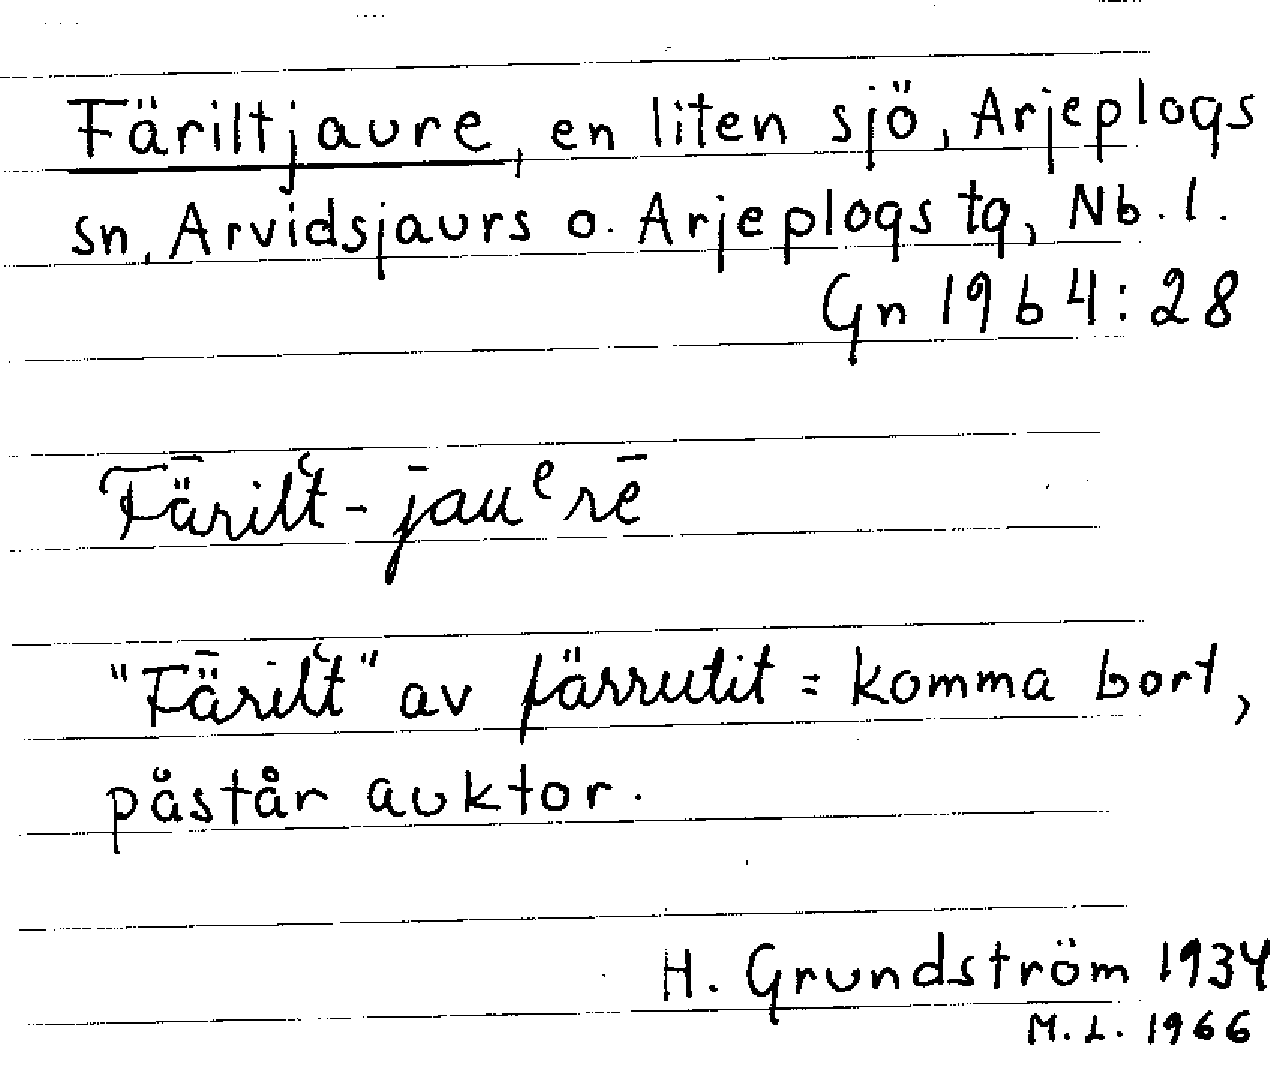 Färiltjaure, en liten sjö, Arjeplogs
sn, Arvidsjaurs o. Arjeplogs tg, Nb. l.
Gn 1964:28
Fǟrilt̔ - jauᵉrē
"Fǟrilt̔" av färrutit = komma bort,
påstår auktor.
H. Grundström 1934
M.L. 1966